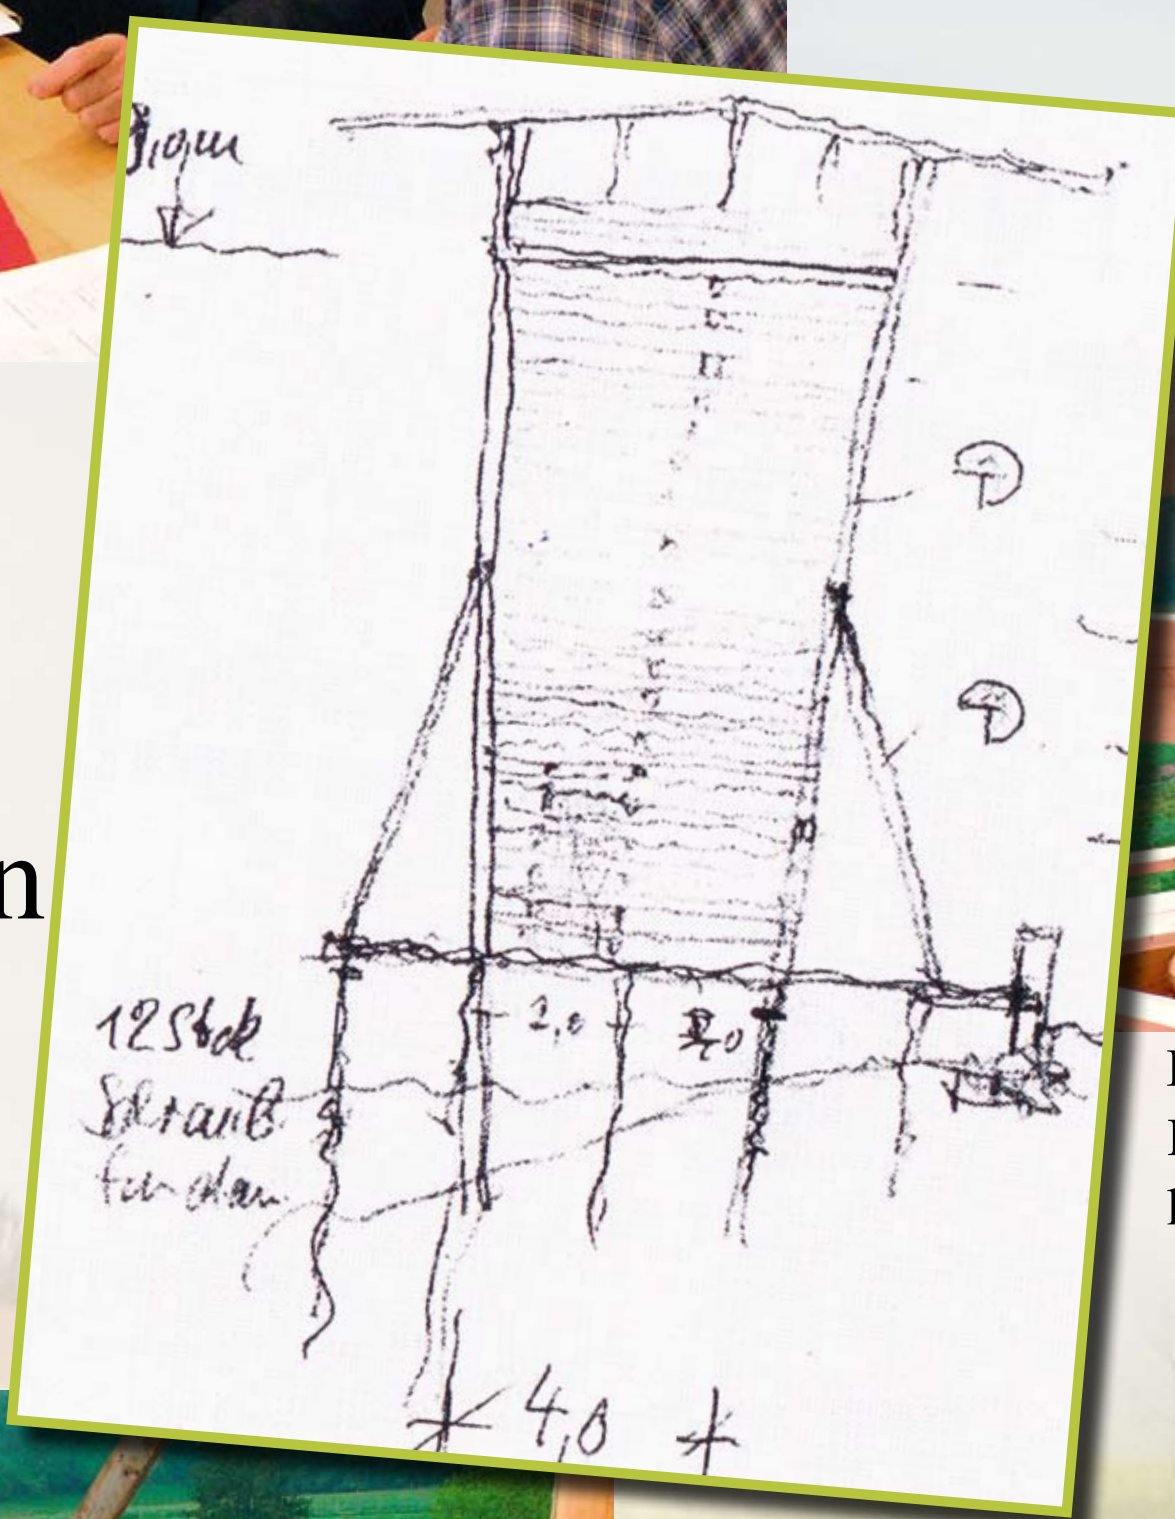 12 Stck
Schraub
fundam
2,0
2,0
4,0
n